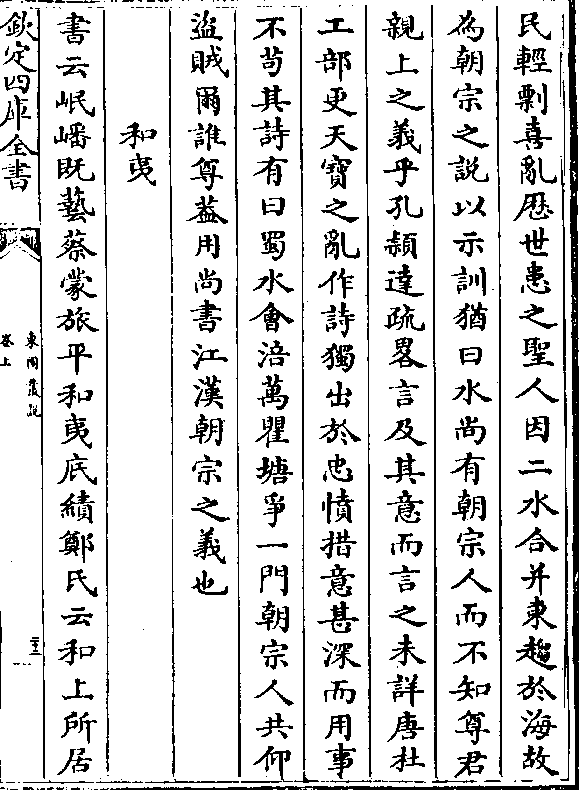 民輕剽喜亂歷世患之聖人因二水合并東趨於海故
為朝宗之說以示訓猶曰水尚有朝宗人而不知尊君
親上之義乎孔頴達疏畧言及其意而言之未詳唐杜
工部更天寶之亂作詩獨出於忠憤措意甚深而用事
不苟其詩有曰蜀水會涪萬瞿塘爭一門朝宗人共仰
盜賊爾誰尊葢用尚書江漢朝宗之義也
和夷
書云岷嶓既藝蔡蒙旅平和夷底績鄭氏云和上所居
欽定四庫全書
東園叢說
卷上